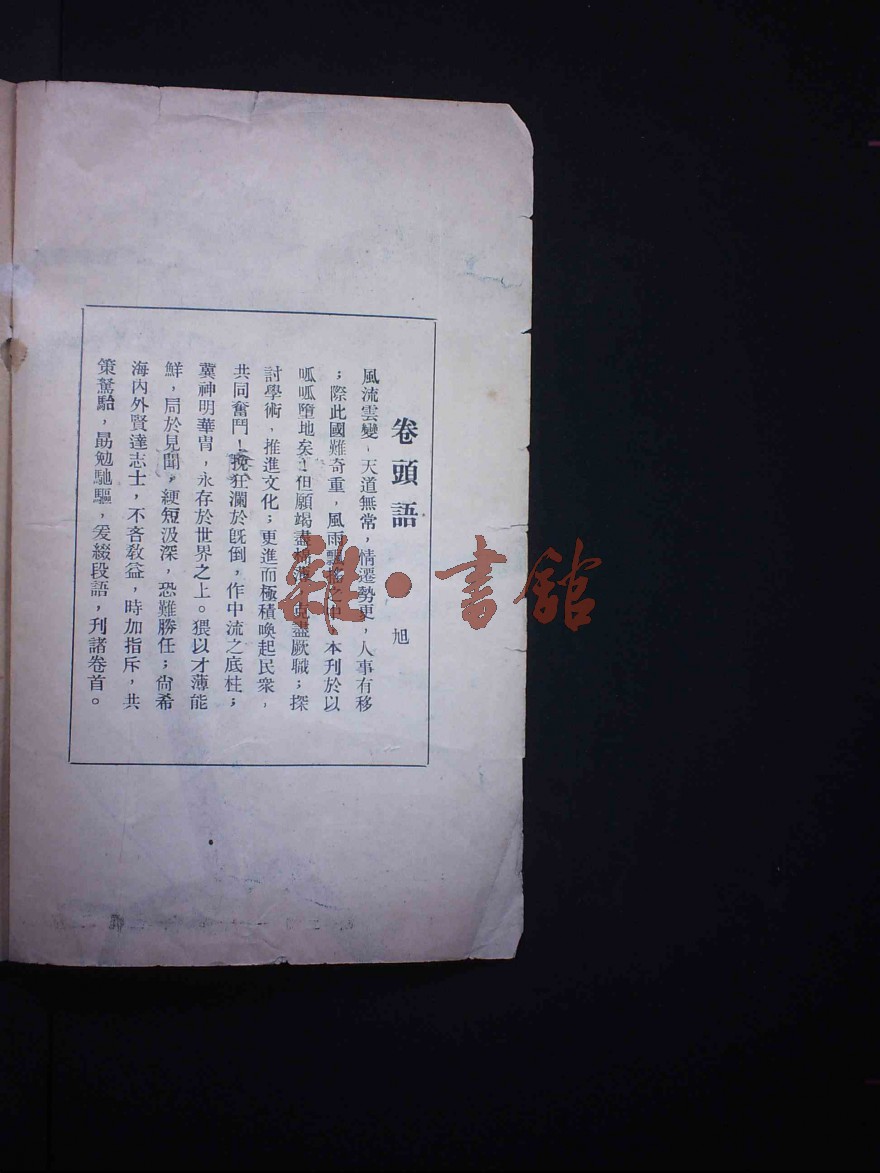 卷頭語
旭
風流雲變、天道無常，情遷勢更，人事有移
；際此國難奇重，風雨飄搖之中，本刊於以
呱呱墮地矣！但願竭盡克盡厥職；探
討學術，推進文化；更進而極積喚起民衆，
共同奮鬥！挽狂瀾於旣倒，作中流之底柱；
冀神明華胄，永存於世界之上。猥以才薄能
鮮，局於見聞，綆短汲深，恐難勝任；尙希
海內外賢達志士，不吝敎益，時加指斥，共
策駑駘，勗勉馳驅，爰綴段語，刋諸卷首。
雜·書館